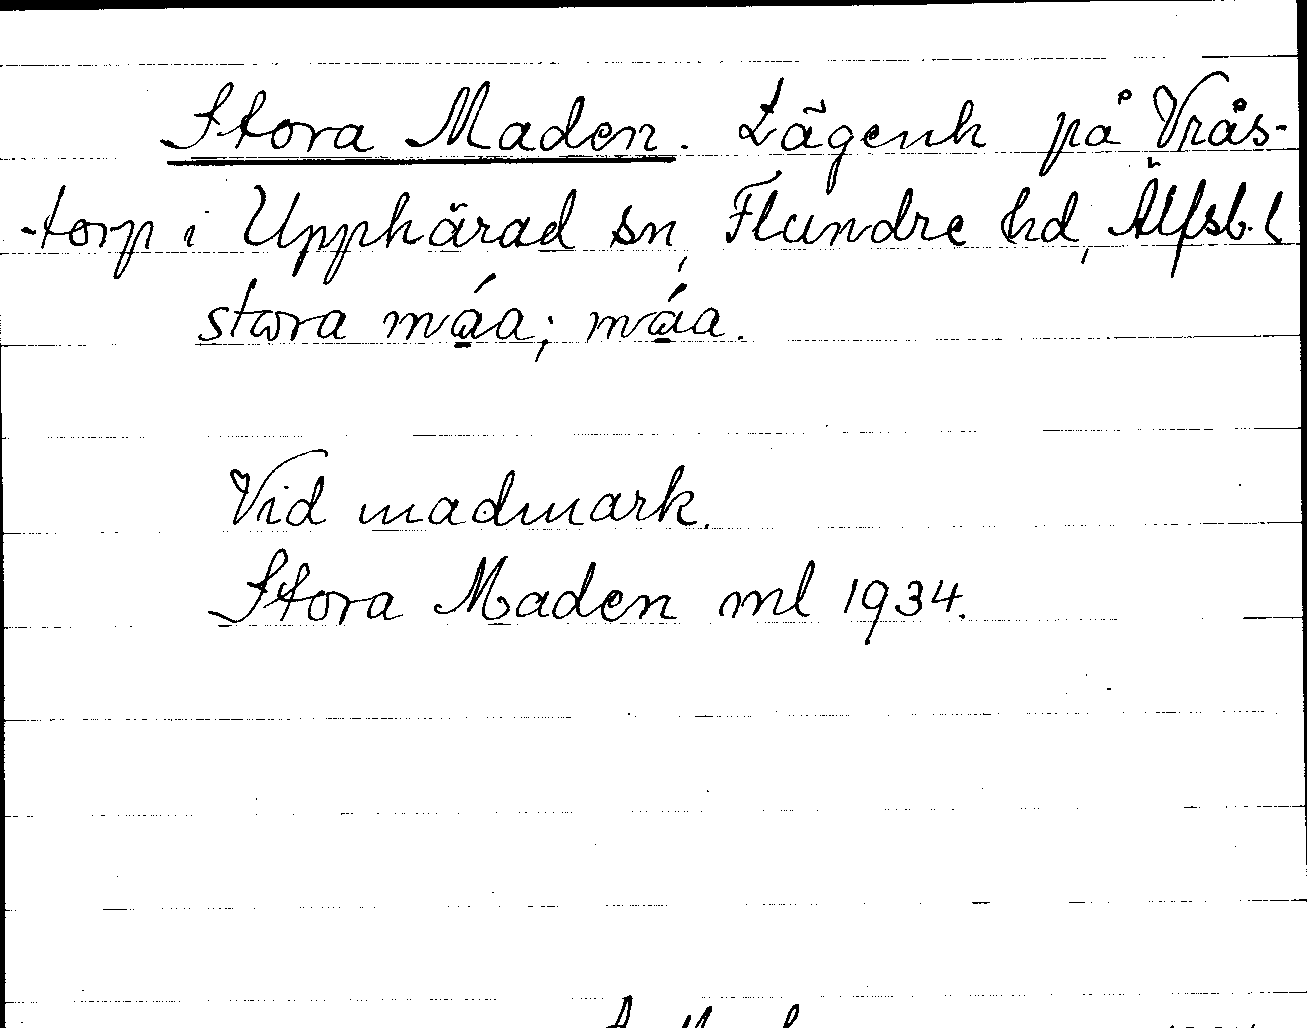 Stora Maden. Lägenh på Vrås-
torp i Upphärad sn, Flundre hd, Älfsb. l
stora má̲a; má̲a.
Vid madmark.
Stora Maden ml 1934.